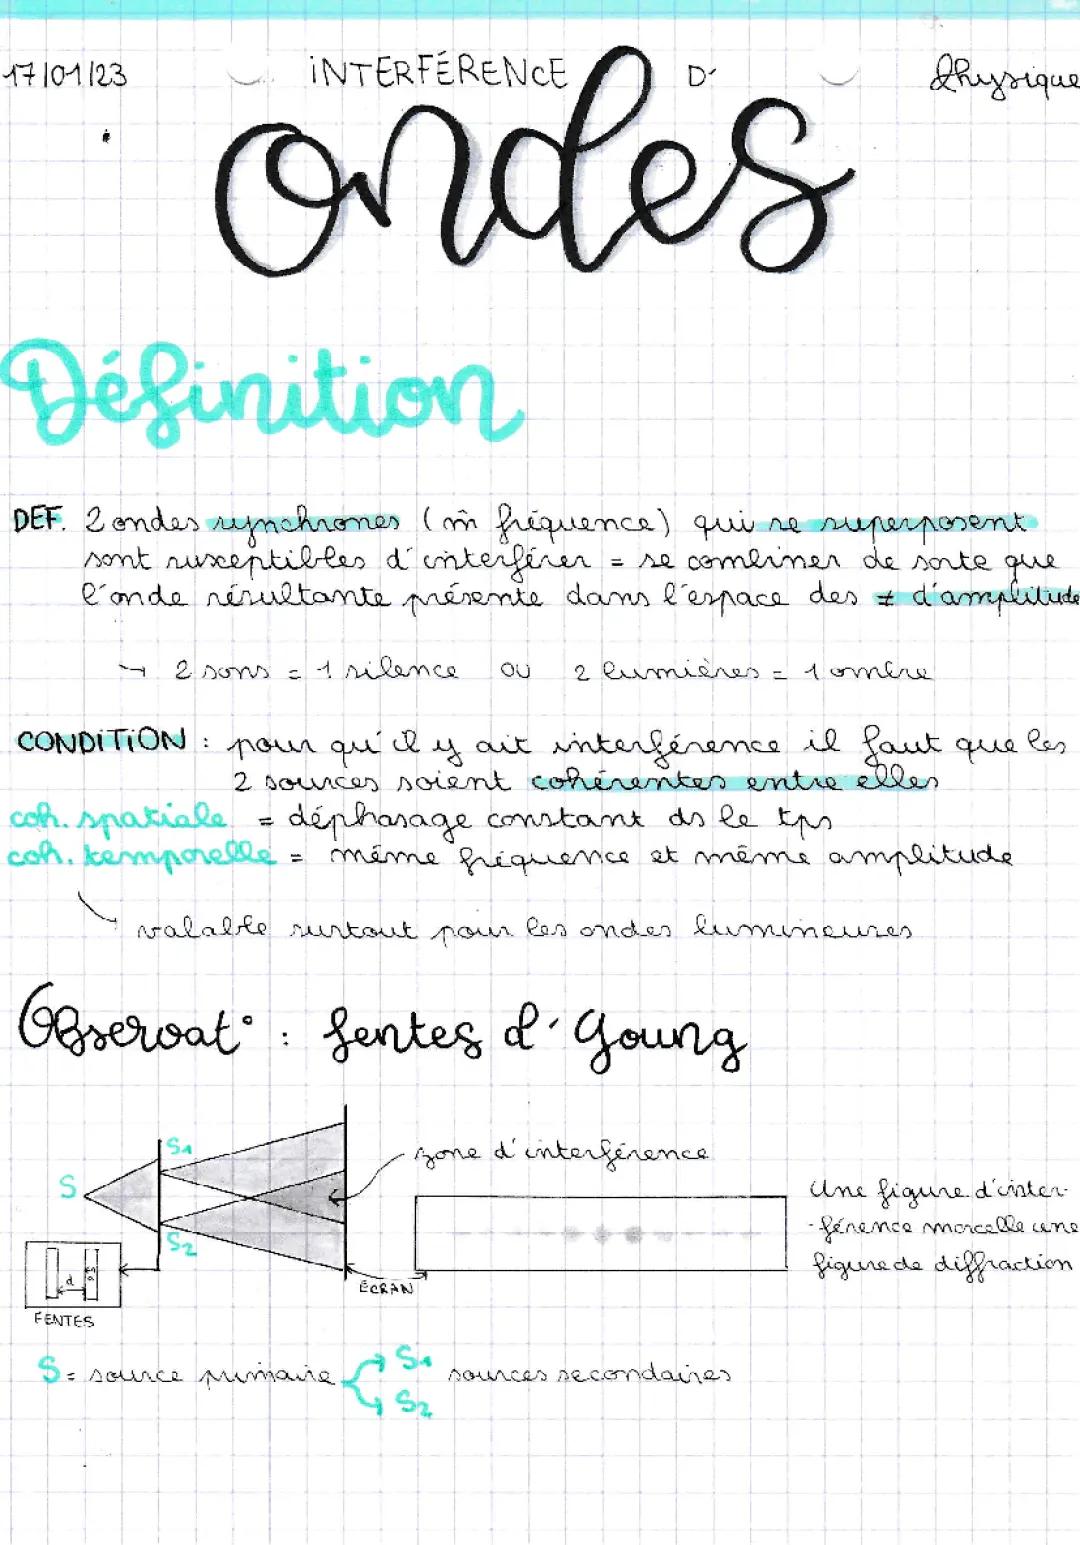 17/01/23
INTERFÉRENCE D'
Physique
ondes
Définition
DEF. 2 ondes synchrones (m̂ fréquence) qui se superposent
sont susceptibles d'interférer = se combiner de sorte que
l'onde résultante présente dans l'espace des ≠ d'amplitude
→ 2 sons = 1 silence ou 2 lumières = 1 ombre
CONDITION : pour qu'il y ait interférence il faut que les
2 sources soient cohérentes entre elles
coh. spatiale = déphasage constant ds le tps
coh. temporelle = même fréquence et même amplitude
valable surtout pour les ondes lumineuses
Observat° : fentes d'Young
S1
zone d'interférence
S
Une figure d'inter-
-férence morcelle une
figure de diffraction
S2
d
a
ÉCRAN
FENTES
S = source primaire S1 sources secondaires
S2